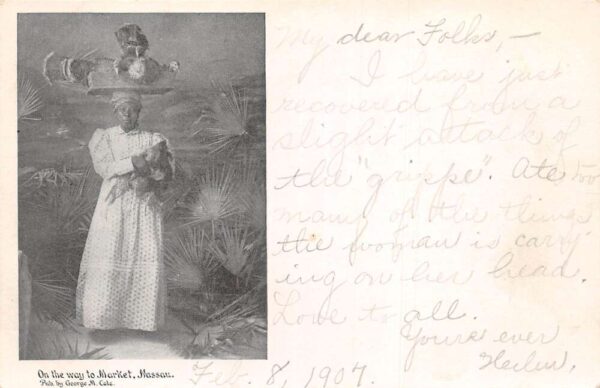 My dear Folks, —
I have just
recovered from a
slight attack of
the "grippe". Ate too
many of the things
the woman is carry
ing on her head.
Love to all.
Yours ever
Feb. 8, 1907.
On the way to Market, Nassau.
Pub. by George M. Cole.